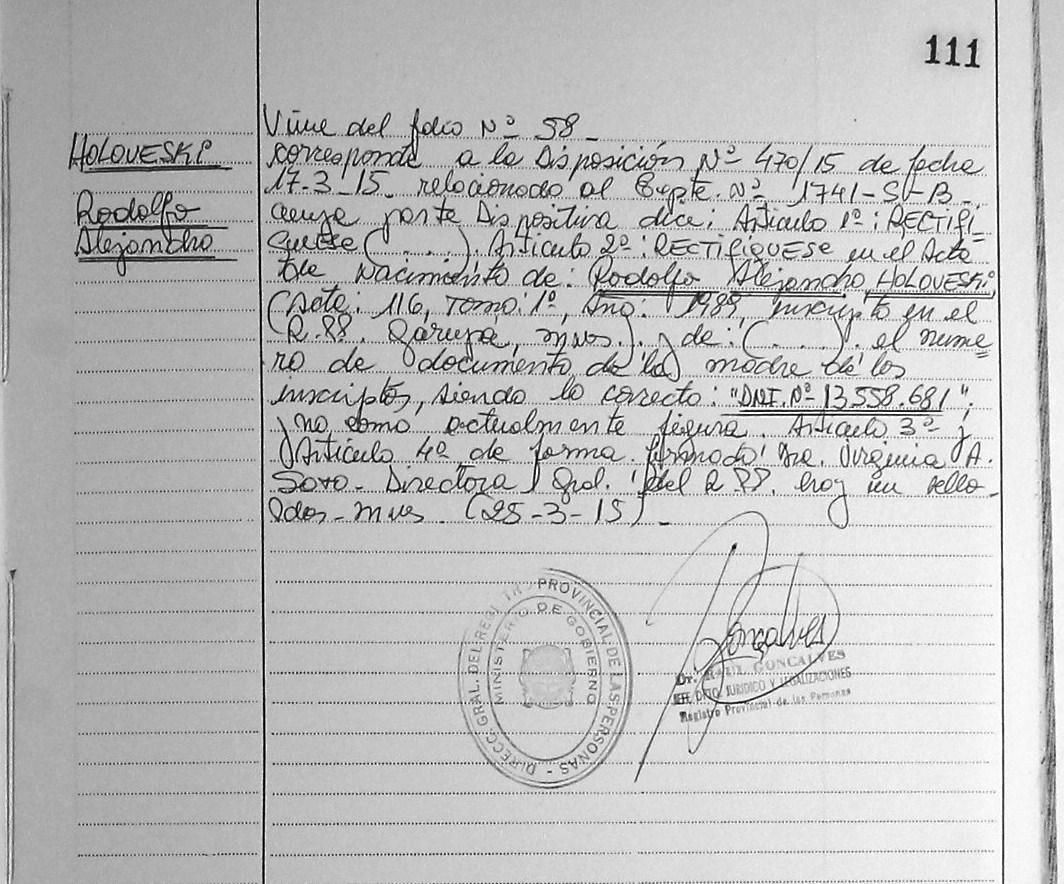 111
Viene del folio Nº 58_
HOLOVESKI
Rodolfo
Alejandro
corresponde a la Disposición Nº 470/15 de fecha
17-3-15 relacionado al Expte. Nº 1741-S-B-.
cuya parte Dispositiva dice: Artículo 1º: RECTIFI-
quese (....). Artículo 2º: RECTIFIQUESE en el Acta
de Nacimiento de: Rodolfo Alejandro HOLOVESKI
(Acta: 116, Tomo: 1º, Año: 1989, inscripto en el
R.PP. Garupá, mnes.). de: (....). el nume-
ro de documento de la madre de los
inscriptos, siendo lo correcto: "DNI. Nº 13.558.681";
y no como actualmente figura. Artículo 3º y
Artículo 4º de forma. firmado: Dra. Virginia A.
Soto - Directora Gral. del R.PP. hoy un sello-
Pdas-mnes. (25-3-15)_
DIRECC. GRAL. DEL REGISTRO PROVINCIAL DE LAS PERSONAS -
MINISTERIO DE GOBIERNO
Goncalves
Dr. RAUL GONCALVES
JEFE DPTO. JURIDICO Y LEGALIZACIONES
Registro Provincial de las Personas